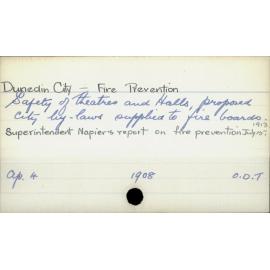 Dunedin City - Fire Prevention
Safety of theatres and Halls, proposed
City by-laws supplied to fire boards.
1913
Superintendent Napier's report on fire prevention July 15.
Ap. 4 1908 O.D.T